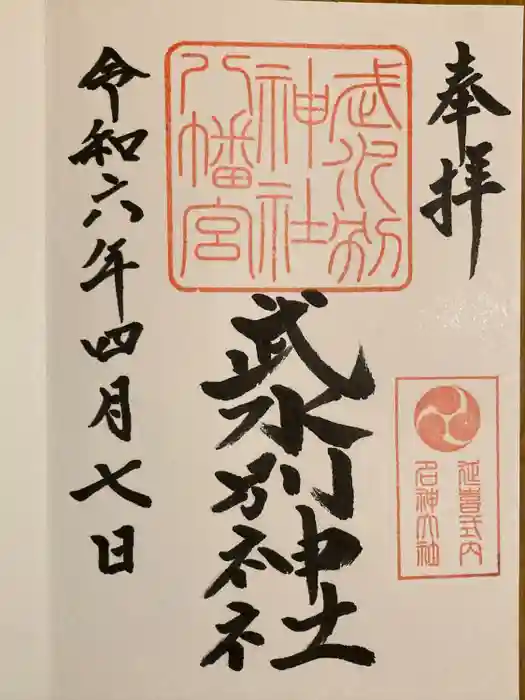 奉拝
延喜式内
名神大社
武水別
神社
八幡宮
武水別神社
令和六年四月七日